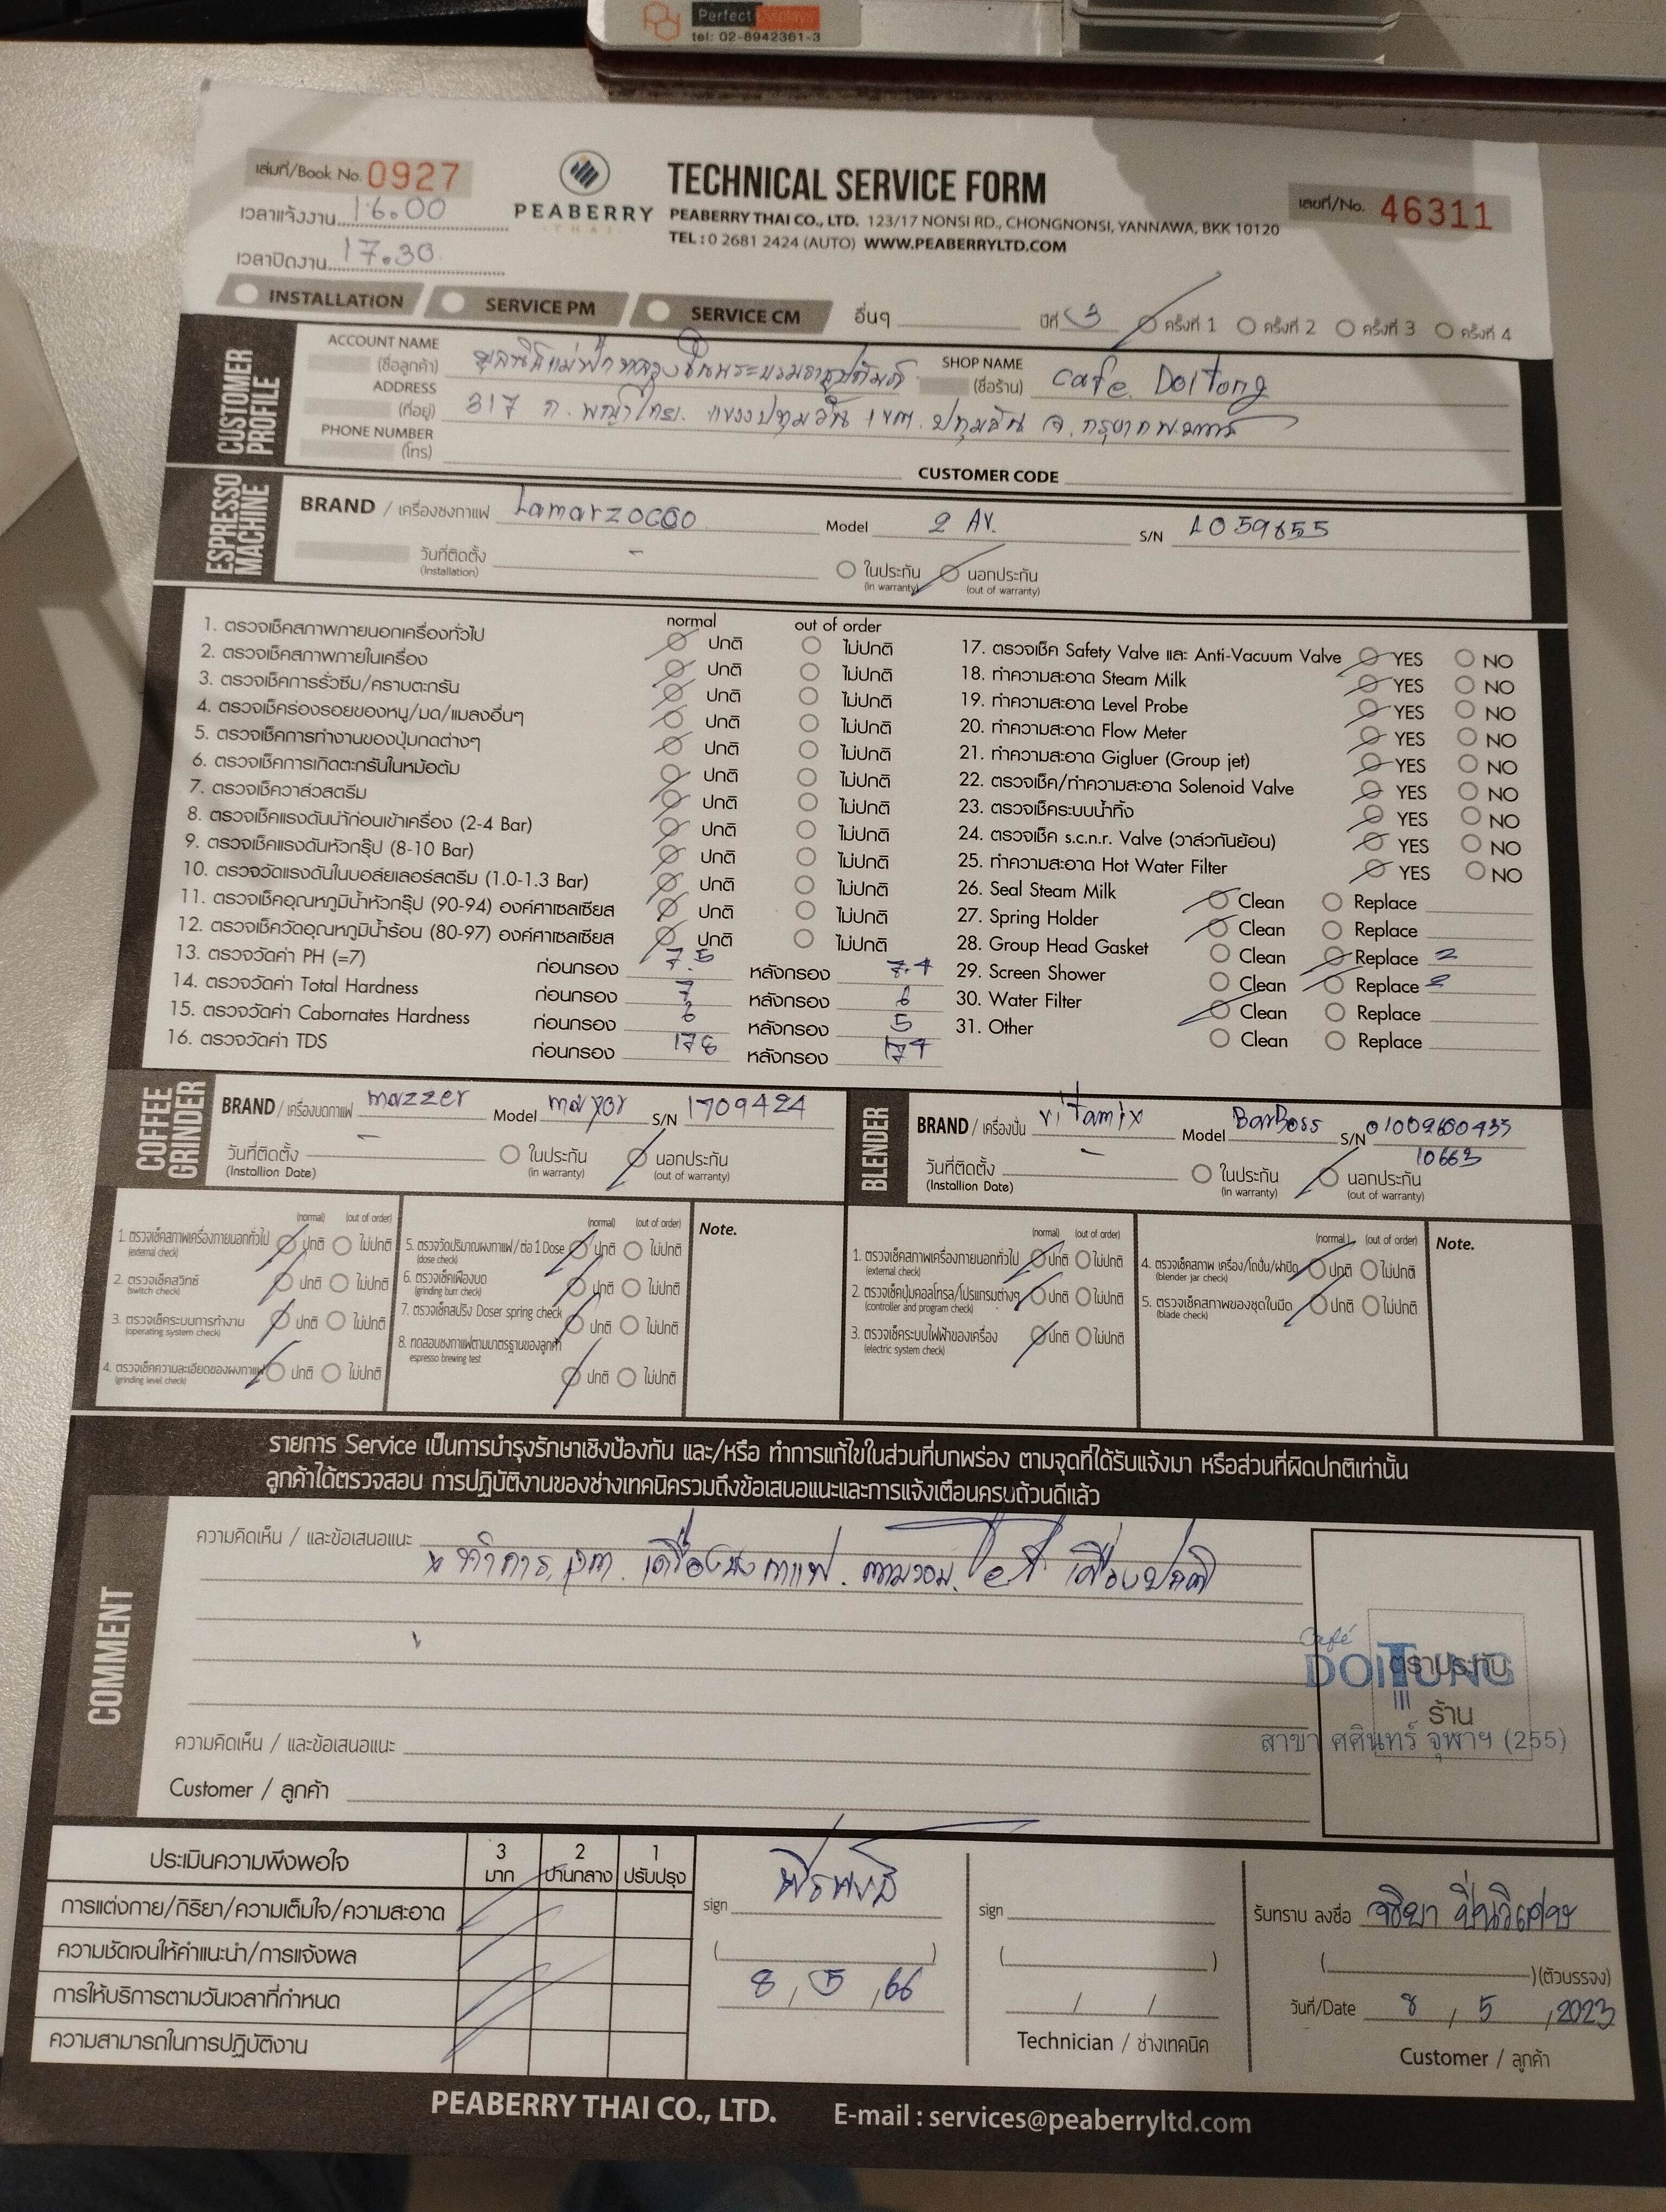 Perfect Displays
tel: 02-8942361-3
เล่มที่/Book No. 0927
เวลาแจ้งงาน 16.00
เวลาปิดงาน 17.30
PEABERRY
THAI
TECHNICAL SERVICE FORM
PEABERRY THAI CO., LTD. 123/17 NONSI RD., CHONGNONSI, YANNAWA, BKK 10120
TEL : 0 2681 2424 (AUTO) WWW.PEABERRYLTD.COM
เลขที่/No. 46311
INSTALLATION SERVICE PM SERVICE CM อื่นๆ ปีที่ 3 ครั้งที่ 1 ครั้งที่ 2 ครั้งที่ 3 ครั้งที่ 4
CUSTOMER PROFILE
ACCOUNT NAME
(ชื่อลูกค้า) มูลนิธิแม่ฟ้าหลวงในพระบรมราชูปถัมภ์
SHOP NAME
(ชื่อร้าน) cafe Doitong
ADDRESS
(ที่อยู่) 317 ถ. พญาไทย. แขวงปทุมวัน เขต. ปทุมวัน จ. กรุงเทพ
PHONE NUMBER
(โทร)
CUSTOMER CODE
ESPRESSO MACHINE
BRAND / เครื่องชงกาแฟ Lamarzocco Model 2 AV. S/N
วันที่ติดตั้ง -
(Installation)
ในประกัน
(in warranty)
นอกประกัน
(out of warranty)
normal out of order
1. ตรวจเช็คสภาพภายนอกเครื่องทั่วไป ปกติ ไม่ปกติ
2. ตรวจเช็คสภาพภายในเครื่อง ปกติ ไม่ปกติ
3. ตรวจเช็คการรั่วซึม/คราบตะกรัน ปกติ ไม่ปกติ
4. ตรวจเช็คร่องรอยของหนู/มด/แมลงอื่นๆ ปกติ ไม่ปกติ
5. ตรวจเช็คการทำงานของปุ่มกดต่างๆ ปกติ ไม่ปกติ
6. ตรวจเช็คการเกิดตะกรันในหม้อต้ม ปกติ ไม่ปกติ
7. ตรวจเช็ควาล์วสตรีม ปกติ ไม่ปกติ
8. ตรวจเช็คแรงดันน้ำก่อนเข้าเครื่อง (2-4 Bar) ปกติ ไม่ปกติ
9. ตรวจเช็คแรงดันหัวกรุ๊ป (8-10 Bar) ปกติ ไม่ปกติ
10. ตรวจวัดแรงดันในบอล์ยเลอร์สตรีม (1.0-1.3 Bar) ปกติ ไม่ปกติ
11. ตรวจเช็คอุณหภูมิน้ำหัวกรุ๊ป (90-94) องศ์ศาเซลเซียส ปกติ ไม่ปกติ
12. ตรวจเช็ควัดอุณหภูมิน้ำร้อน (80-97) องศ์ศาเซลเซียส ปกติ ไม่ปกติ
13. ตรวจวัดค่า PH (=7) ก่อนกรอง 7.5 หลังกรอง 7.4
14. ตรวจวัดค่า Total Hardness ก่อนกรอง 7 หลังกรอง 6
15. ตรวจวัดค่า Cabornates Hardness ก่อนกรอง 6 หลังกรอง 5
16. ตรวจวัดค่า TDS ก่อนกรอง 178 หลังกรอง 174
17. ตรวจเช็ค Safety Valve และ Anti-Vacuum Valve YES NO
18. ทำความสะอาด Steam Milk YES NO
19. ทำความสะอาด Level Probe YES NO
20. ทำความสะอาด Flow Meter YES NO
21. ทำความสะอาด Gigluer (Group jet) YES NO
22. ตรวจเช็ค/ทำความสะอาด Solenoid Valve YES NO
23. ตรวจเช็คระบบน้ำทิ้ง YES NO
24. ตรวจเช็ค s.c.n.r. Valve (วาล์วกันย้อน) YES NO
25. ทำความสะอาด Hot Water Filter YES NO
26. Seal Steam Milk Clean Replace
27. Spring Holder Clean Replace
28. Group Head Gasket Clean Replace 2
29. Screen Shower Clean Replace 2
30. Water Filter Clean Replace
31. Other Clean Replace
COFFEE GRINDER
BRAND / เครื่องบดกาแฟ mazzer Model mayor S/N 1709424
วันที่ติดตั้ง -
(Installion Date)
ในประกัน
(in warranty)
นอกประกัน
(out of warranty)
BLENDER
BRAND / เครื่องปั่น vitamix Model BarBoss S/N
10663
วันที่ติดตั้ง -
(Installion Date)
ในประกัน
(in warranty)
นอกประกัน
(out of warranty)
(normal) (out of order)
1. ตรวจเช็คสภาพเครื่องภายนอกทั่วไป ปกติ ไม่ปกติ
(external check)
2. ตรวจเช็คสวิทซ์ ปกติ ไม่ปกติ
(switch check)
3. ตรวจเช็คระบบการทำงาน ปกติ ไม่ปกติ
(operating system check)
4. ตรวจเช็คความละเอียดของผงกาแฟ ปกติ ไม่ปกติ
(grinding level check)
(normal) (out of order)
5. ตรวจวัดปริมาณผงกาแฟ/ต่อ 1 Dose ปกติ ไม่ปกติ
(dose check)
6. ตรวจเช็คเฟืองบด ปกติ ไม่ปกติ
(grinding burr check)
7. ตรวจเช็คสปริง Doser spring check ปกติ ไม่ปกติ
8. ทดสอบชงกาแฟตามมาตรฐานของลูกค้า
espresso brewing test ปกติ ไม่ปกติ
Note.
(normal) (out of order)
1. ตรวจเช็คสภาพเครื่องภายนอกทั่วไป ปกติ ไม่ปกติ
(external check)
2. ตรวจเช็คปุ่มคอลโทรล/โปรแกรมต่างๆ ปกติ ไม่ปกติ
(controller and program check)
3. ตรวจเช็คระบบไฟฟ้าของเครื่อง ปกติ ไม่ปกติ
(electric system check)
(normal) (out of order)
4. ตรวจเช็คสภาพ เครื่อง/โถปั่น/ฝาปิด ปกติ ไม่ปกติ
(blender jar check)
5. ตรวจเช็คสภาพของชุดใบมีด ปกติ ไม่ปกติ
(blade check)
Note.
รายการ Service เป็นการบำรุงรักษาเชิงป้องกัน และ/หรือ ทำการแก้ไขในส่วนที่บกพร่อง ตามจุดที่ได้รับแจ้งมา หรือส่วนที่ผิดปกติเท่านั้น
ลูกค้าได้ตรวจสอบ การปฏิบัติงานของช่างเทคนิครวมถึงข้อเสนอแนะและการแจ้งเตือนครบถ้วนดีแล้ว
COMMENT
ความคิดเห็น / และข้อเสนอแนะ ทำการ. pm. เครื่องชงกาแฟ. เครื่องปกติ
ตราประทับ
ร้าน
Café
DOITUNG
สาขา ศศินทร์ จุฬาฯ (255)
ความคิดเห็น / และข้อเสนอแนะ
Customer / ลูกค้า
ประเมินความพึงพอใจ 3 มาก 2 ปานกลาง 1 ปรับปรุง
การแต่งกาย/กิริยา/ความเต็มใจ/ความสะอาด
ความชัดเจนให้คำแนะนำ/การแจ้งผล
การให้บริการตามวันเวลาที่กำหนด
ความสามารถในการปฏิบัติงาน
sign
( )
8 / 5 / 66
sign
( )
/ /
Technician / ช่างเทคนิค
รับทราบ ลงชื่อ
( ) (ตัวบรรจง)
วันที่/Date 8 / 5 / 2023
Customer / ลูกค้า
PEABERRY THAI CO., LTD. E-mail : services@peaberryltd.com